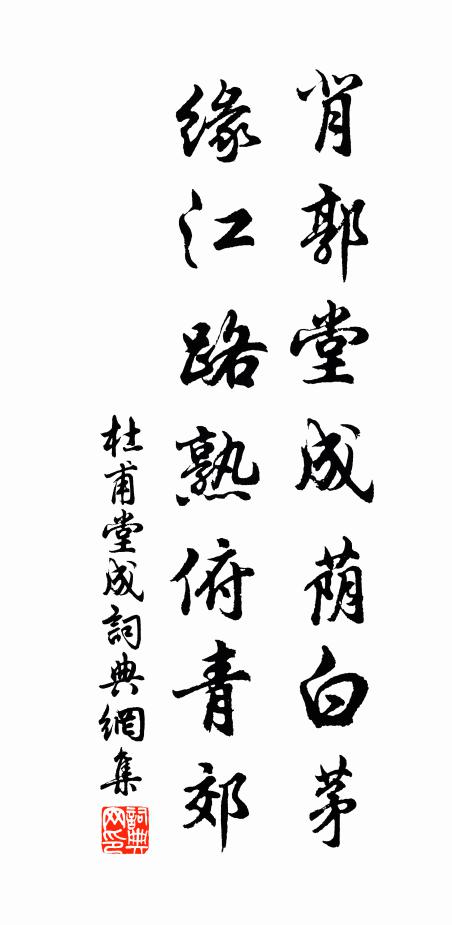 背郭堂成荫白茅
缘江路熟俯青郊
杜甫堂成詞典網集
詞典网印